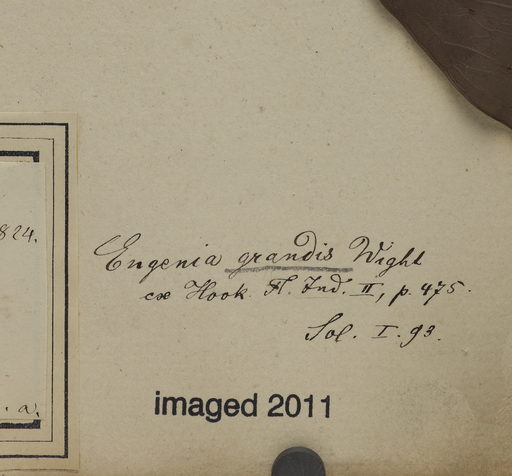 824.
Eugenia grandis Wight
ex Hook. Fl. Ind. II, p. 475.
Sol. I. 93.
. a.
imaged 2011